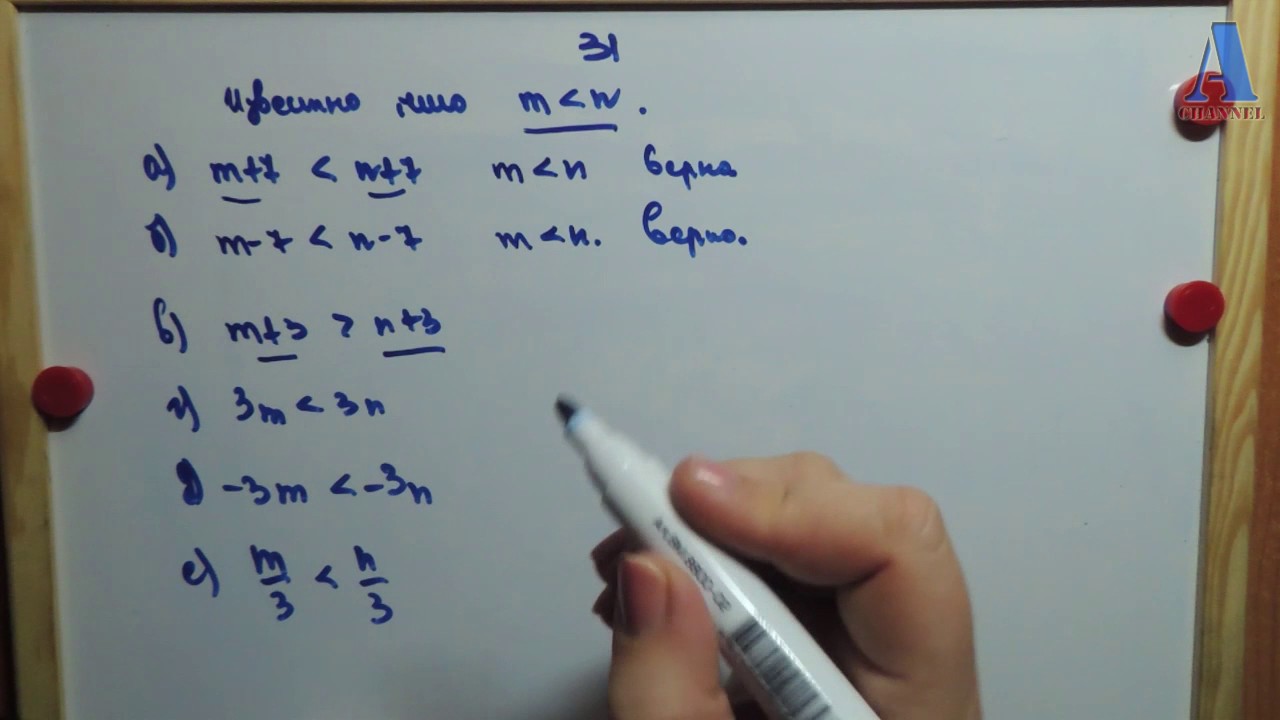 31
Известно что m < n.
а) m+7 < n+7 m < n верно
б) m-7 < n-7 m < n. верно.
в) m+3 > n+3
г) 3m < 3n
д) -3m < -3n
е) m/3 < n/3
A
CHANNEL